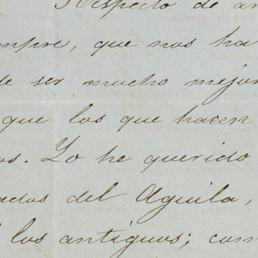 Respecto de an
mpre, que nos ha
de ser mucho mejor
que los que hacen
os. Yo he querido
ados del Aguila,
los antiguos; com